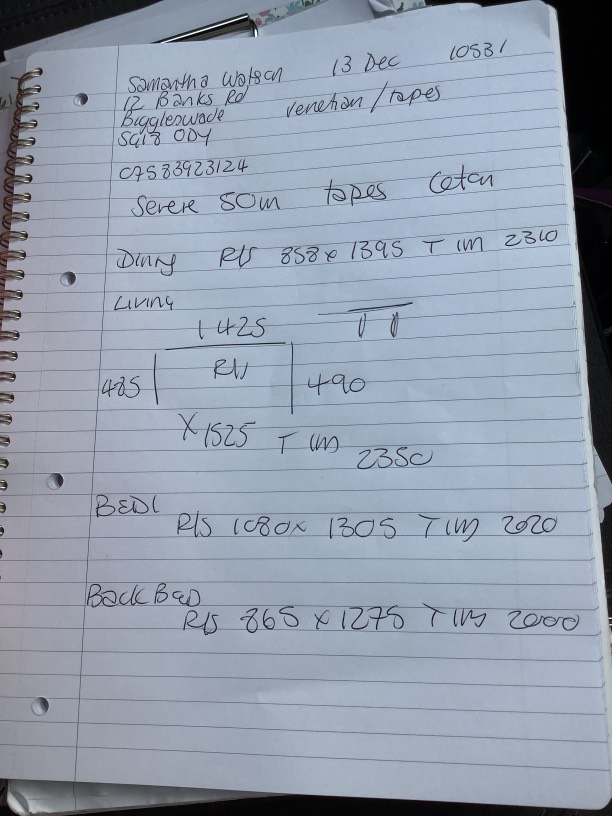 Samantha Watson 13 Dec 10531
12 Banks Rd
Biggleswade venetian / tapes
SG18 0DY
07583923124
Serere 50m tapes
Dining R/S 858 x 1395 T 1M 2310
Living
1425
485 R/S 490
X 1525 T 1M
2350
BED1
R/S 1080 x 1305 T 1M 2020
Back BED
R/S 865 x 1275 T 1M 2000